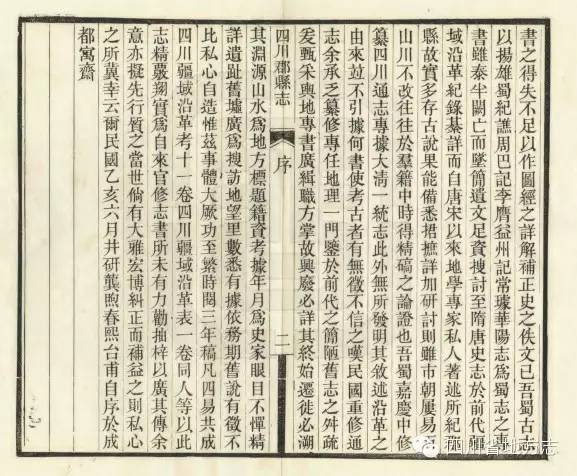 書之得失不足以作圖經之詳解補正史之佚文已吾蜀古
以揚雄蜀紀譙周巴記李膺益州記常璩華陽志爲蜀志之
書雖泰半闕亡而墜簡遺文足資搜討至隋唐史志於前代
域沿革紀錄綦詳而自唐宋以來地學專家私人著述所紀
縣故實多存古說果能備悉捃摭詳加研討則雖市朝屢易
山川不改往往於羣籍中時得精碻之論證也吾蜀嘉慶中修
纂四川通志專據大淸一統志此外無所發明其敘述沿革之
由來竝不引據何書使考古者有無徵不信之嘆民國重修通
志余承乏纂修專任地理一門鑒於前代之簡陋舊志之舛疏
爰甄采輿地專書廣緝職方掌故興廢必詳其終始遷徙必溯
四川郡縣志
序
二
其淵源山水爲地方標題籍資考據年月爲史家眼目不憚精
詳遺趾舊墟廣爲搜訪地望里數悉有據依務期舊說有徵不
比私心自造惟茲事體大厥功至繁時閱三年稿凡四易共成
四川疆域沿革考十一卷四川疆域沿革表一卷同人等以此
志精覈翔實爲自來官修志書所未有力勸抽梓以廣其傳余
意亦擬先行質之當世倘有大雅宏博糾正而補益之則私心
之所冀幸云爾民國乙亥六月井硏龔煦春熙台甫自序於成
都寓齋
四川省地方志